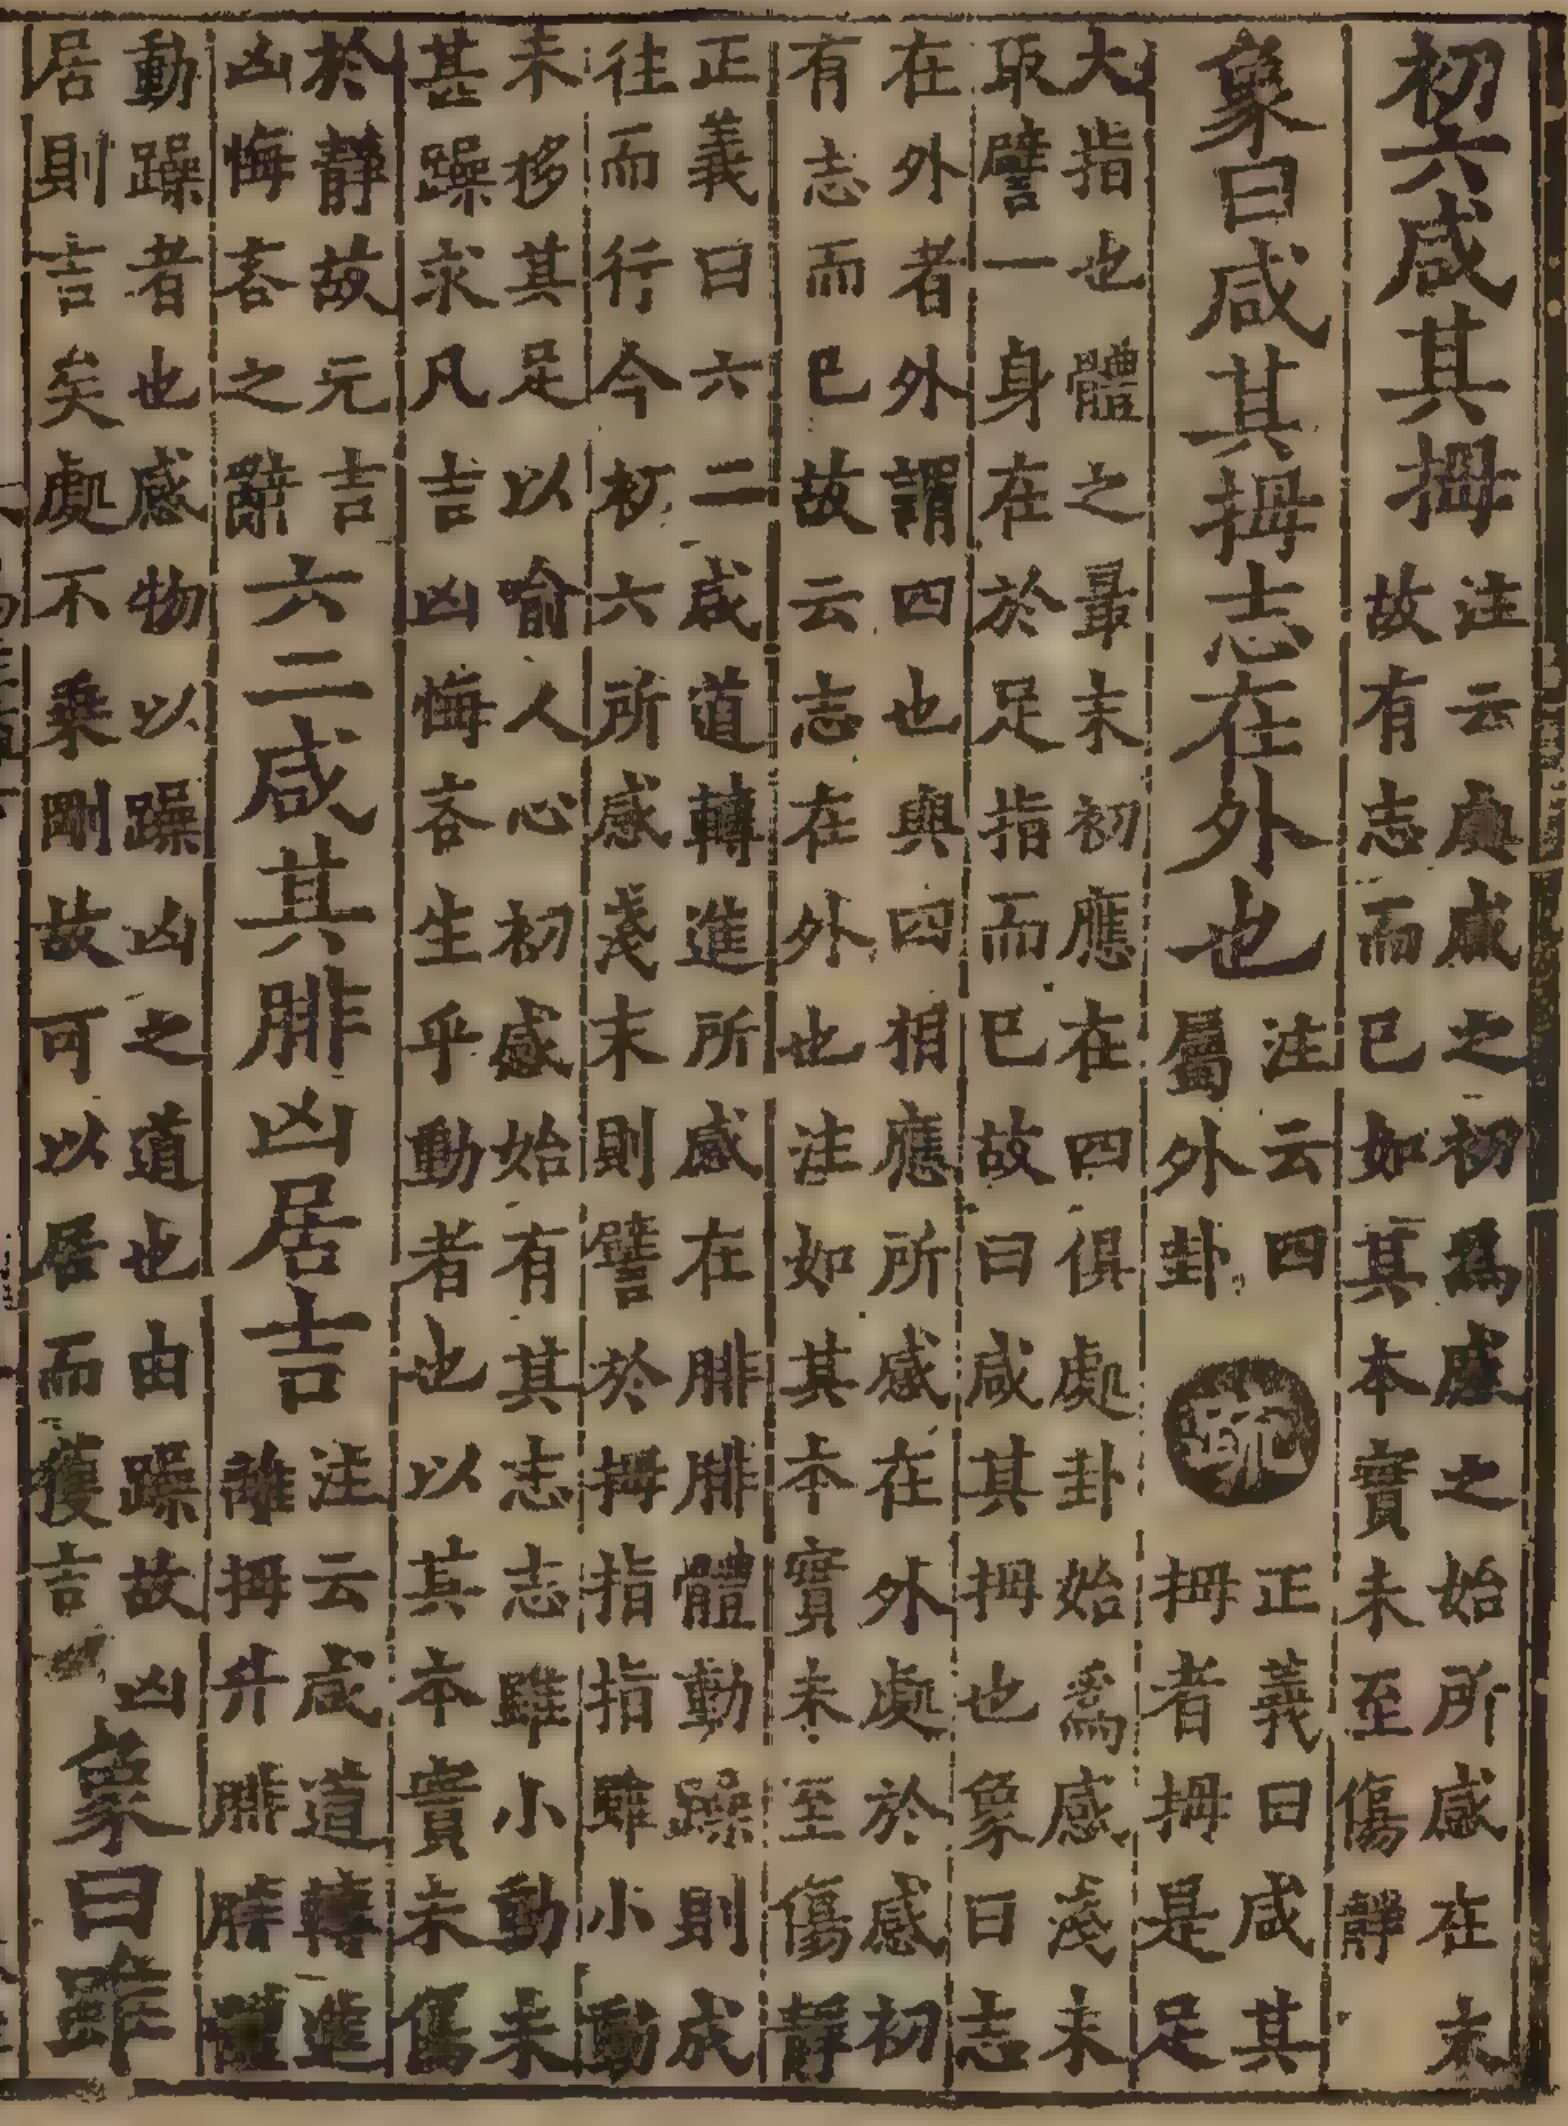 初六咸其拇注云處咸之初爲感之始所感在末
故有志而已如其本實未至傷靜
象曰咸其拇志在外也注云四
屬外卦
疏
正義曰咸其
拇者拇是足
大指也體之最末初應在四俱處卦始爲感淺末
取譬一身在於足指而已故曰咸其拇也象曰志
在外者外謂四也與四相應所感在外處於感初
有志而已故云志在外也注如其本實未至傷靜
正義曰六二咸道轉進所感在腓腓體動躁則成
往而行今初六所感淺末則譬於拇指指雖小動
未移其足以喻人心初感始有其志志雖小動未
甚躁求凡吉凶悔吝生乎動者也以其本實未傷
於靜故元吉
凶悔吝之辭
六二咸其腓凶居吉
注云咸道轉進
離拇升腓腓體
動躁者也感物以躁凶之道也由躁故凶
居則吉矣處不乘剛故可以居而獲吉
象曰雖